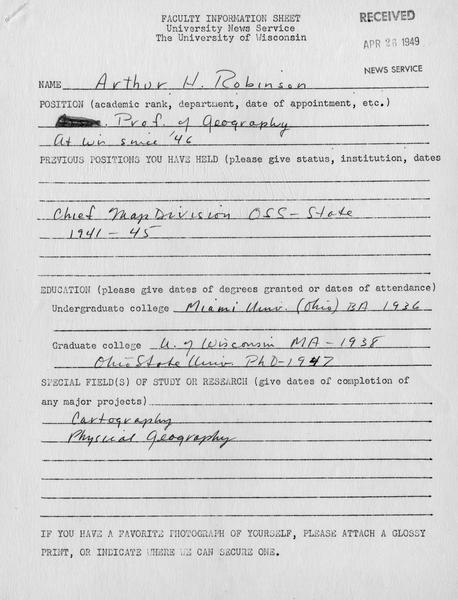 FACULTY INFORMATION SHEET
University News Service
The University of Wisconsin
RECEIVED
APR 26 1949
NEWS SERVICE
NAME Arthur H. Robinson
POSITION (academic rank, department, date of appointment, etc.)
Prof. of Geography
At Wis since '46
PREVIOUS POSITIONS YOU HAVE HELD (please give status, institution, dates
Chief Map Division OSS - State
1941 - 45
EDUCATION (please give dates of degrees granted or dates of attendance)
Undergraduate college Miami Univ. (Ohio) BA 1936
Graduate college U. of Wisconsin MA - 1938
Ohio State Univ. PhD - 1947
SPECIAL FIELD(S) OF STUDY OR RESEARCH (give dates of completion of
any major projects)
Cartography
Physical Geography
IF YOU HAVE A FAVORITE PHOTOGRAPH OF YOURSELF, PLEASE ATTACH A GLOSSY
PRINT, OR INDICATE WHERE WE CAN SECURE ONE.